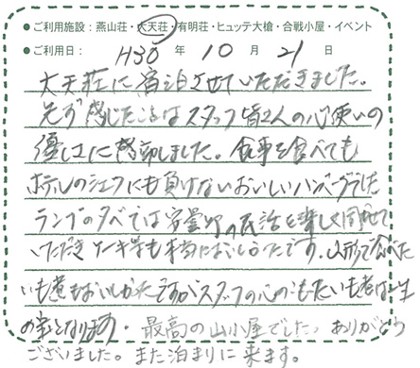 ●ご利用施設：燕山荘・大天荘・有明荘・ヒュッテ大槍・合戦小屋・イベント
●ご利用日： H30 年 10 月 21 日
大天荘に宿泊させていただきました。
先ず感じたことはスタッフ皆さんの心使いの
優しさに感動しました。食事を食べても
ホテルのシェフにも負けないおいしいハンバーグでした
ランプの夕べでは 民話を楽しく聞かせて
いただきケーキ 本当においしかったです。山形で食べた
いも煮もおいしかったですがスタッフの心のこもったいも煮は一生
の宝となります・最高の山小屋でした。ありがとう
ございました。また泊まりに来ます。